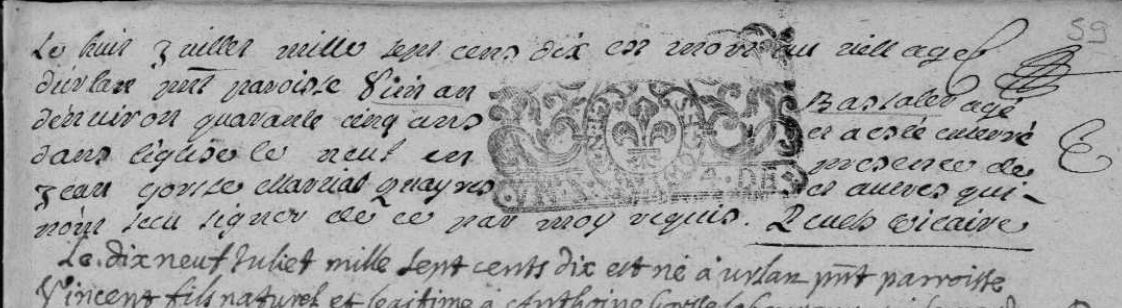 59
Le huit juillet mille sept cens dix est mort au village
d'urlan pnt paroisse Vinian Bastaler agé
d'enuiron quarante cinq ans et a esté enterré
dans l'eglise le neuf en presence de
jean gorsse Martial quayres et autres qui
n'ont sceu signer de ce par moy requis. vicaire
Le dix neuf Juliet mille sept cents dix est né à urlan pnt parroisse
Vincent fils naturel et legitime à Anthoine